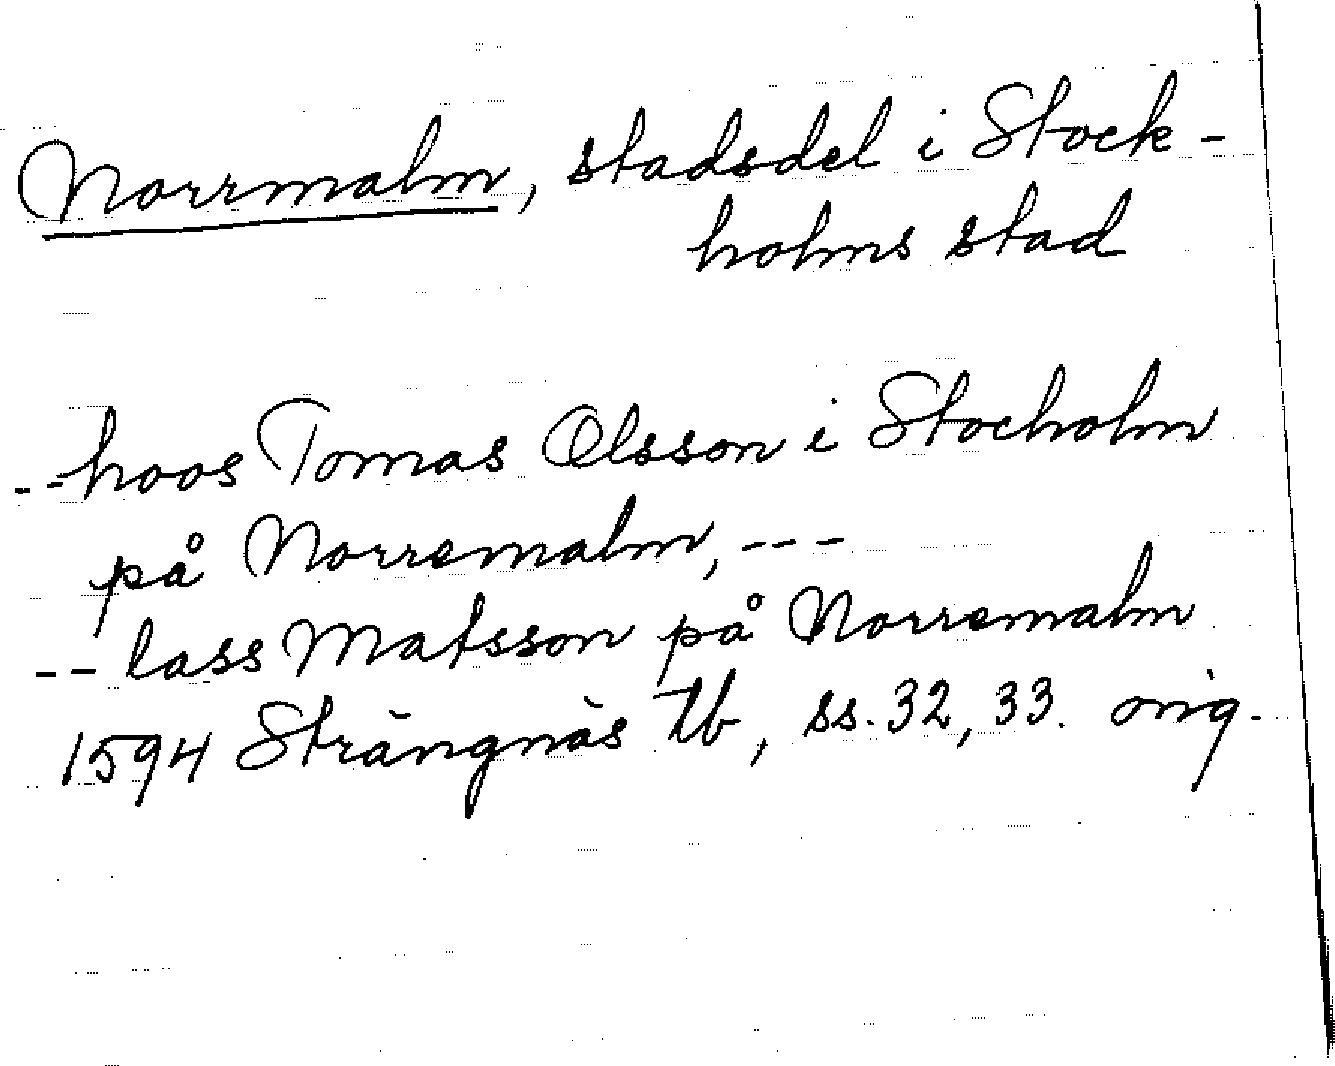 Norrmalm, stadsdel i Stock-
holms stad
-- hoos Tomas Olsson i Stocholm
på Norremalm, ---
-- lass Matsson på Norremalm
1594 Strängnäs tb, ss. 32, 33. orig.